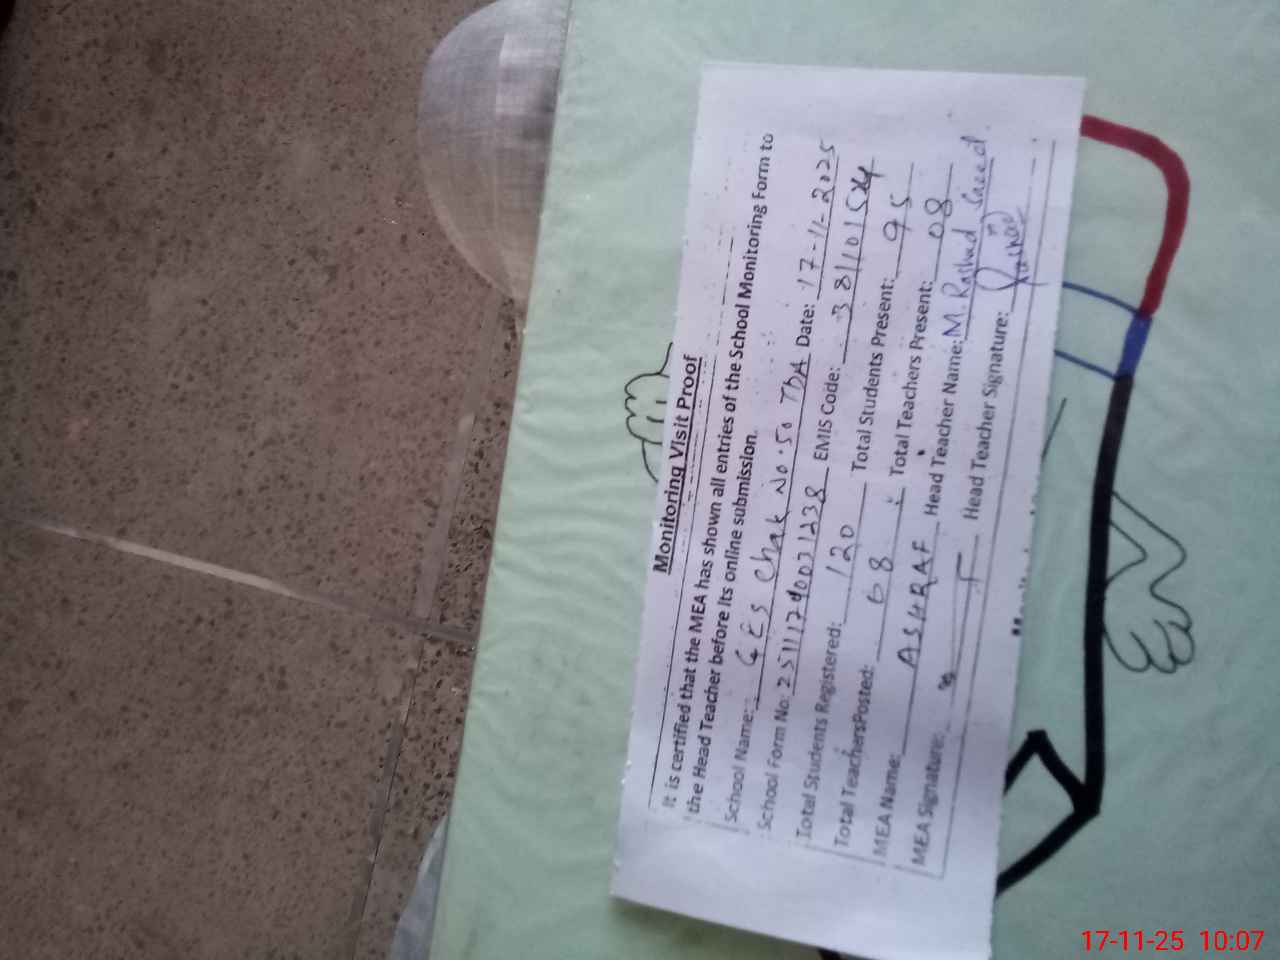 Monitoring Visit Proof
It is certified that the MEA has shown all entries of the School Monitoring Form to
the Head Teacher before its online submission.
School Name: GES Chak No. 50 TDA Date: 17-11-2025
School Form No: EMIS Code:
Total Students Registered: 120 Total Students Present: 95
Total TeachersPosted: 08 Total Teachers Present: 08
MEA Name: ASHRAF Head Teacher Name: M. Rashad Saeed
MEA Signature: Head Teacher Signature:
17-11-25 10:07